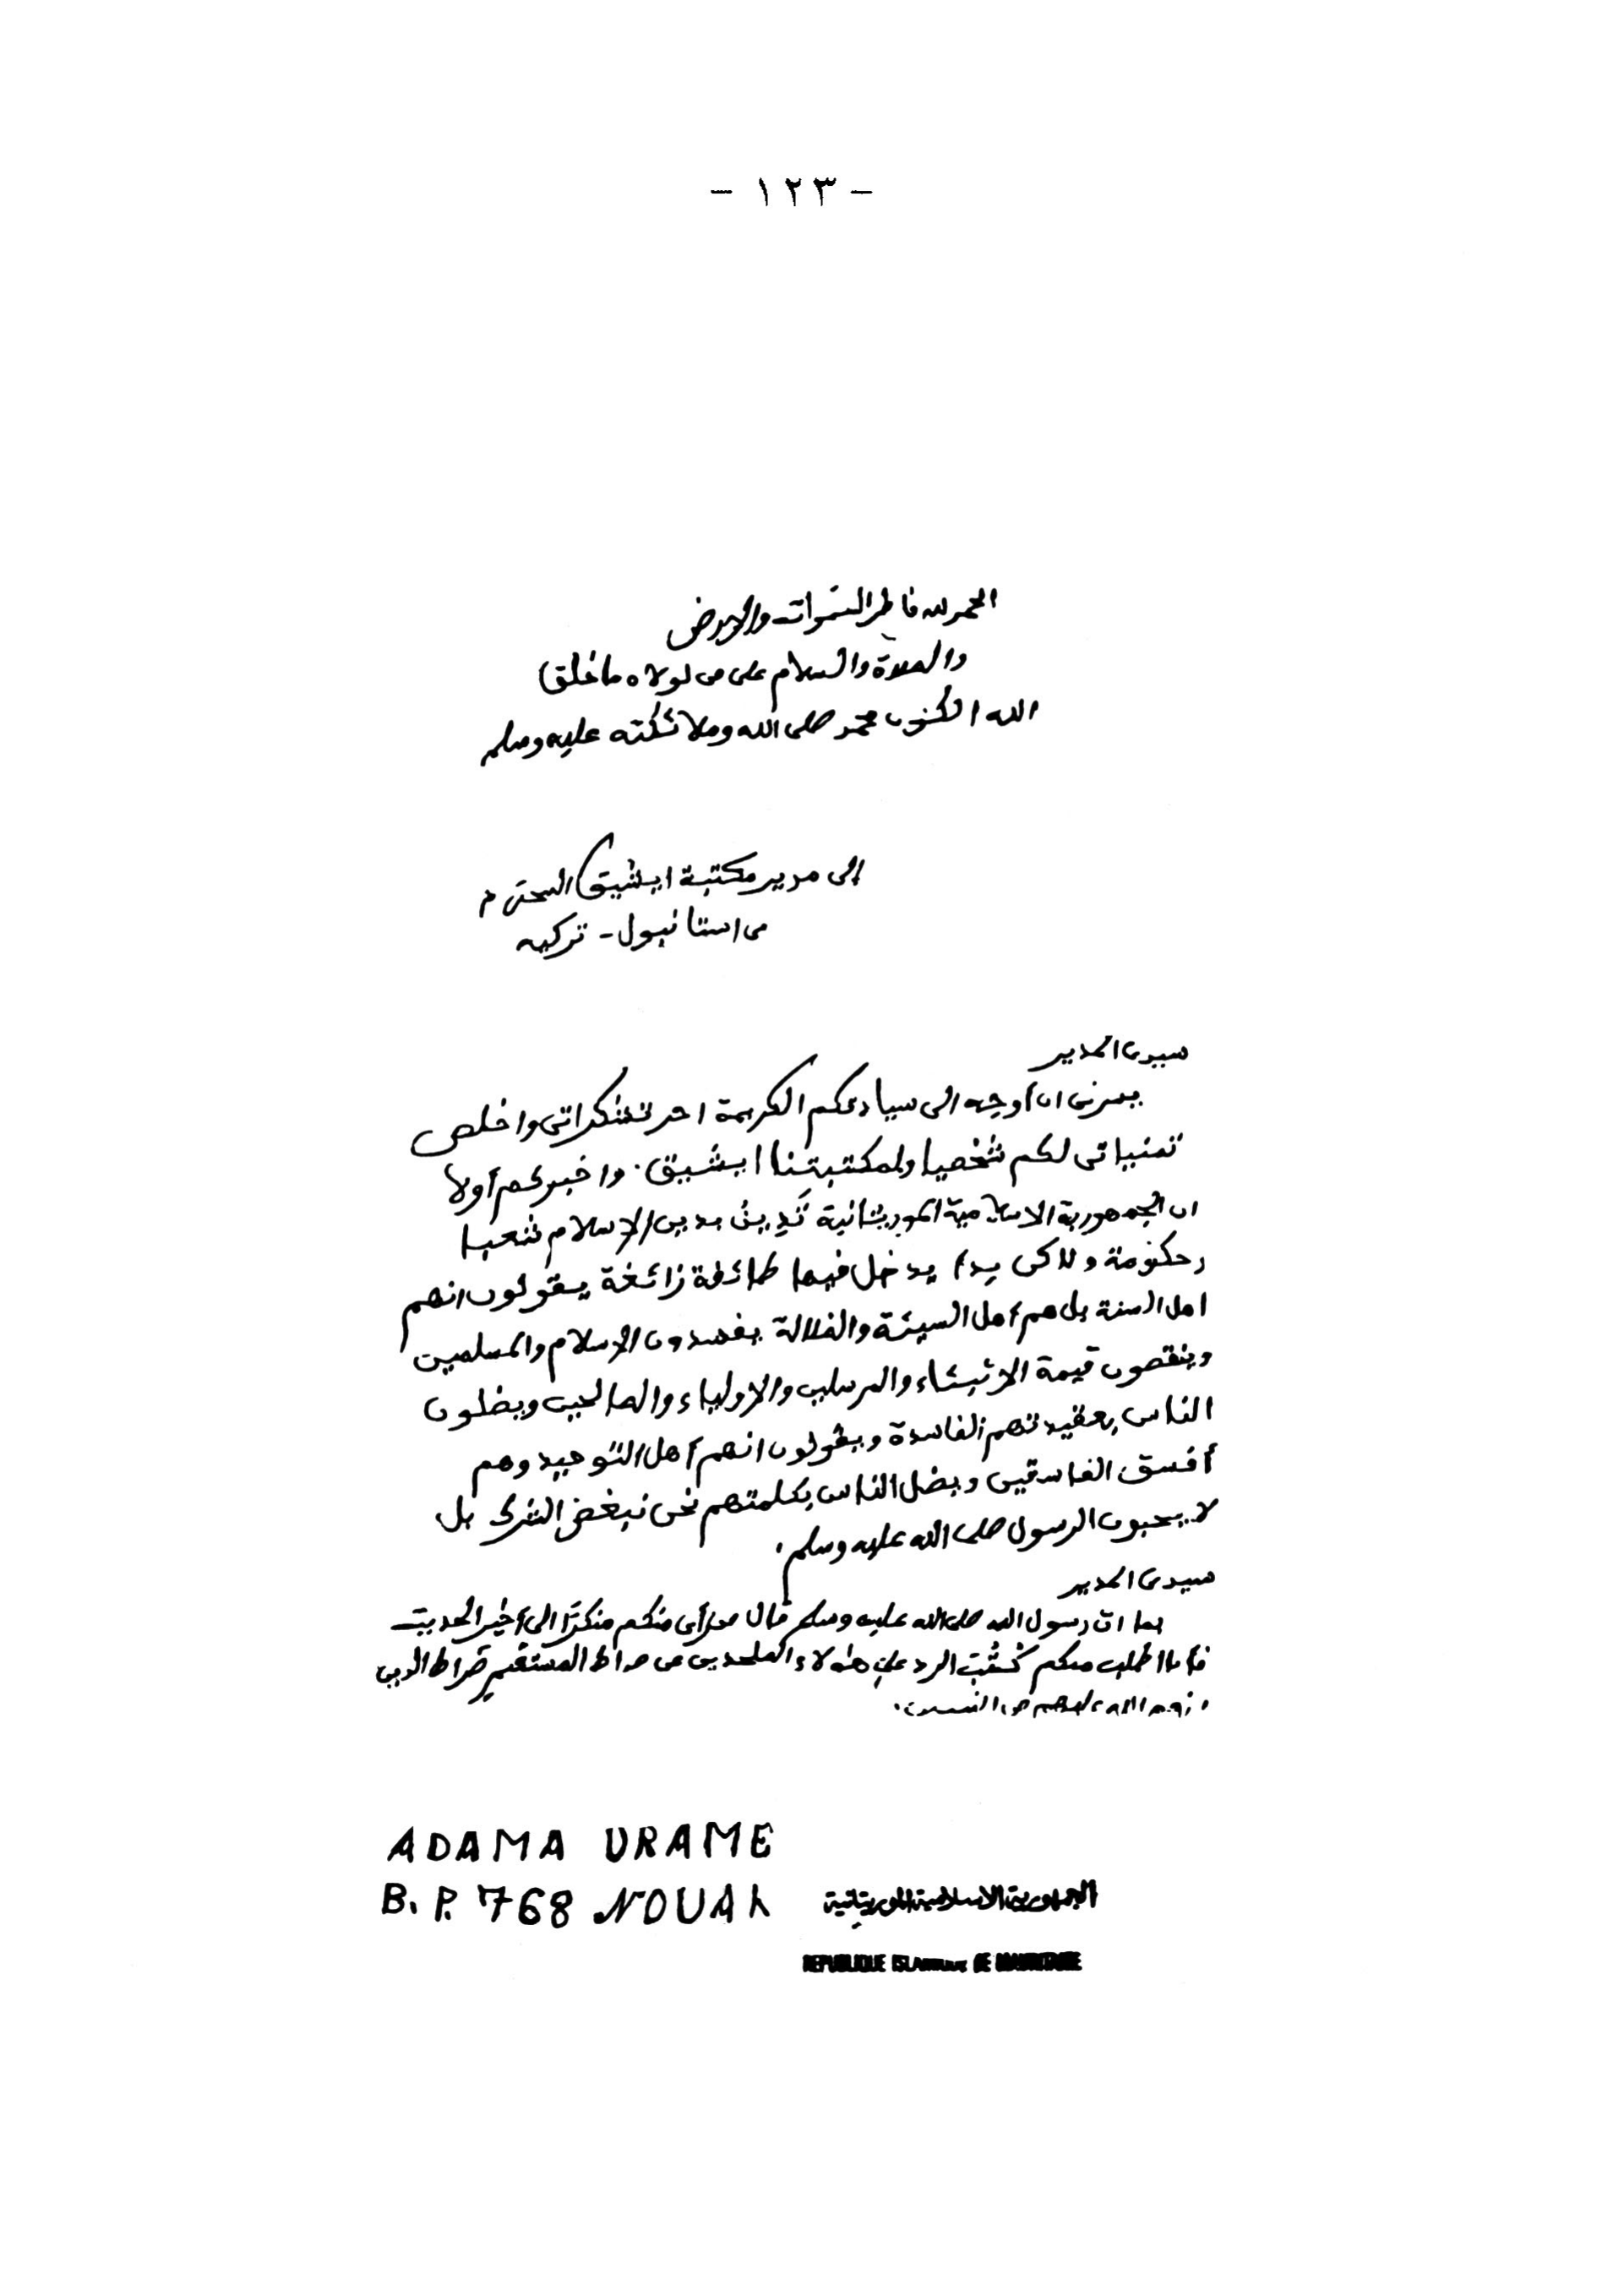 - ١٢٣ -
الحمد لله فاطر السموات والارض
والصلاة والسلام على من لولاه ما خلق
الله الكون محمد صلى الله وملائكته عليه وسلم
الى مدير مكتبة ايشيق المحترم
استانبول - تركيه
سيدى المدير
يسرنى ان أوجه الى سيادتكم الكريمة احر تشكراتى واخلص
تمنياتى لكم شخصيا ولمكتبتنا ايشيق. واخبركم أولا
ان الجمهورية الاسلامية الموريتانية تدين بدين الاسلام شعبا
وحكومة ولاكن بدأ يدخل فيها طائفة زائغة يقولون انهم
اهل السنة بل هم أهل السيئة والضلالة يفسدون الاسلام والمسلمين
وينقصون قيمة الانبياء والمرسلين والاولياء والصالحين ويضلون
الناس بعقيدتهم الفاسدة ويقولون انهم أهل التوحيد وهم
أفسق الفاسقين ويضل الناس بكلمتهم نحن نبغض الشرك بل
لا يحبون الرسول صلى الله عليه وسلم.
سيدى المدير
بما ان رسول الله صلى الله عليه وسلم قال من رأى منكم منكرا الى أخير الحديث
فأنا اطلب منكم كتب الرد على هٰولاء الملحدين عن صراط المستقيم صراط الدين
ADAMA DRAME
B.P. 768 NOUAK
الجمهورية الاسلامية الموريتانية
REPUBLIQUE ISLAMIQUE DE MAURITANIE